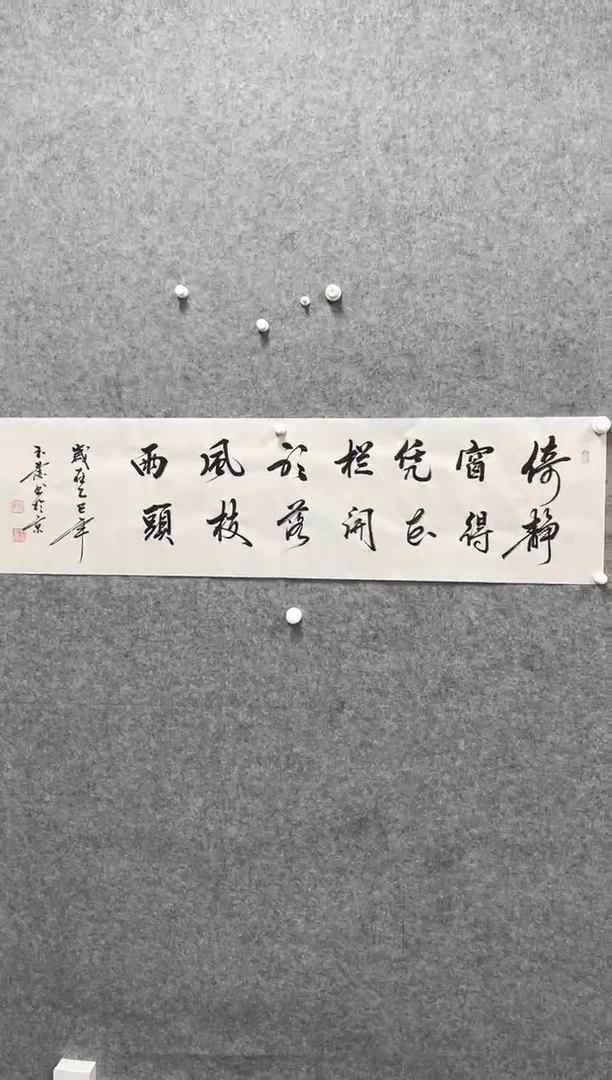 倚窗凭栏於風雨
静得花開落枝頭
歲在乙巳年
玉書於京